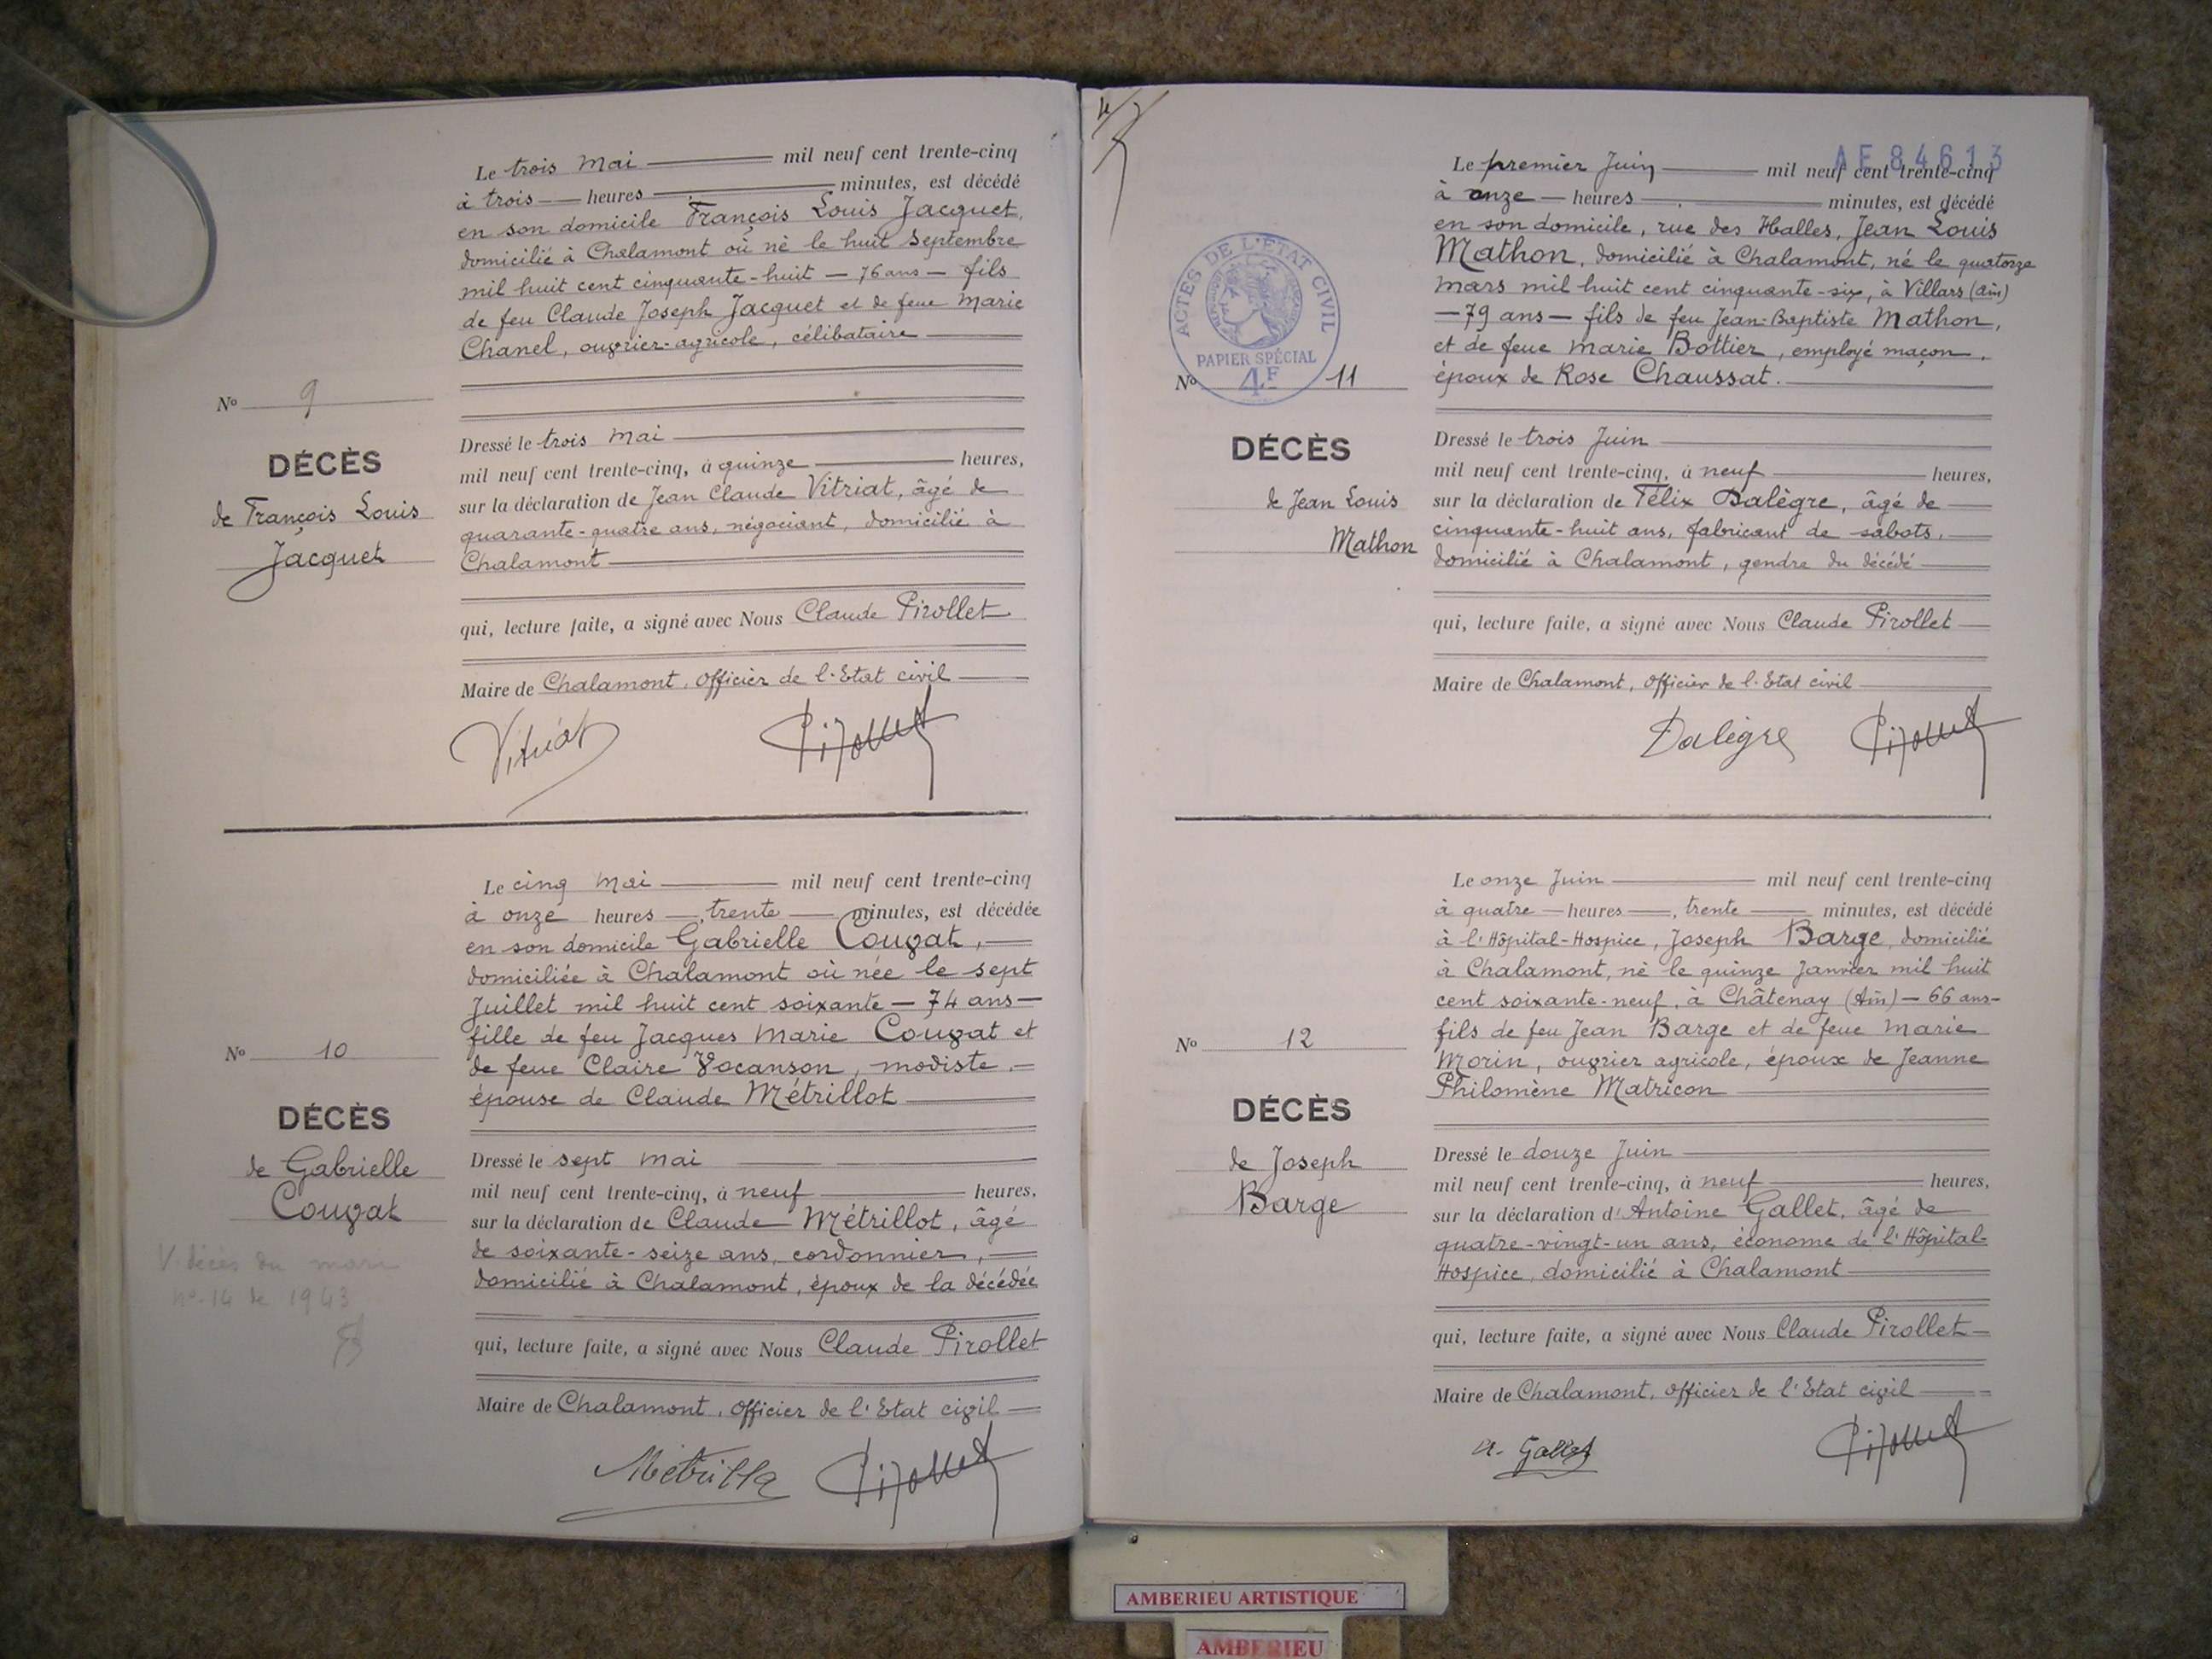 Le trois Mai mil neuf cent trente-cinq
à trois heures minutes, est décédé
en son domicile François Louis Jacquet,
domicilié à Chalamont où né le huit Septembre
mil huit cent cinquante-huit — 76 ans — fils
de feu Claude Joseph Jacquet et de feue Marie
Chanel, ouvrier-agricole, célibataire
No 9
DÉCÈS
de François Louis
Jacquet
Dressé le trois Mai
mil neuf cent trente-cinq, à quinze heures,
sur la déclaration de Jean Claude Vitriat, âgé de
quarante-quatre ans, négociant, domicilié à
Chalamont
qui, lecture faite, a signé avec Nous Claude Pirollet
Maire de Chalamont, Officier de l'Etat civil
Vitriat Pirollet
Le cinq Mai mil neuf cent trente-cinq
à onze heures, trente minutes, est décédée
en son domicile Gabrielle Cougat,
domiciliée à Chalamont où née le sept
Juillet mil huit cent soixante — 74 ans —
fille de feu Jacques Marie Cougat et
de feue Claire Vocanson, modiste,
épouse de Claude Métrillot
No 10
DÉCÈS
de Gabrielle
Cougat
V. décès du mari
no 14 de 1943
Dressé le sept Mai
mil neuf cent trente-cinq, à neuf heures,
sur la déclaration de Claude Métrillot, âgé
de soixante-seize ans, cordonnier,
domicilié à Chalamont, époux de la décédée
qui, lecture faite, a signé avec Nous Claude Pirollet
Maire de Chalamont, Officier de l'Etat civil
Pirollet
AE 84613
Le premier Juin mil neuf cent trente-cinq
à onze heures minutes, est décédé
en son domicile, rue des Halles, Jean Louis
Mathon, domicilié à Chalamont, né le quatorze
Mars mil huit cent cinquante-six, à Villars (Ain)
— 79 ans — fils de feu Jean-Baptiste Mathon,
et de feue Marie Bottier, employé maçon,
époux de Rose Chaussat.
ACTES DE L'ÉTAT CIVIL
PAPIER SPÉCIAL
4F
No 11
DÉCÈS
de Jean Louis
Mathon
Dressé le trois Juin
mil neuf cent trente-cinq, à neuf heures,
sur la déclaration de Félix Dalègre, âgé de
cinquante-huit ans, fabricant de sabots,
domicilié à Chalamont, gendre du décédé
qui, lecture faite, a signé avec Nous Claude Pirollet
Maire de Chalamont, Officier de l'Etat civil
Dalègre Pirollet
Le onze Juin mil neuf cent trente-cinq
à quatre heures, trente minutes, est décédé
à l'Hôpital-Hospice, Joseph Barge, domicilié
à Chalamont, né le quinze Janvier mil huit
cent soixante-neuf, à Châtenay (Ain) — 66 ans —
fils de feu Jean Barge et de feue Marie
Morin, ouvrier agricole, époux de Jeanne
Philomène Matricon
No 12
DÉCÈS
de Joseph
Barge
Dressé le douze Juin
mil neuf cent trente-cinq, à neuf heures,
sur la déclaration d'Antoine Gallet, âgé de
quatre-vingt-un ans, économe de l'Hôpital-
Hospice, domicilié à Chalamont
qui, lecture faite, a signé avec Nous Claude Pirollet
Maire de Chalamont, Officier de l'Etat civil
A. Gallet Pirollet
AMBERIEU ARTISTIQUE
AMBERIEU